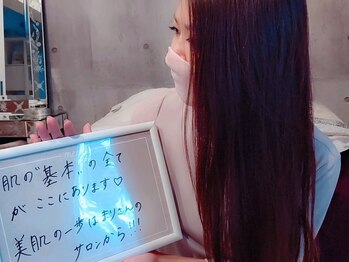 肌の"基本"の全て
が ここにあります♡
美肌の一歩はまりこさんの
サロンから!!!